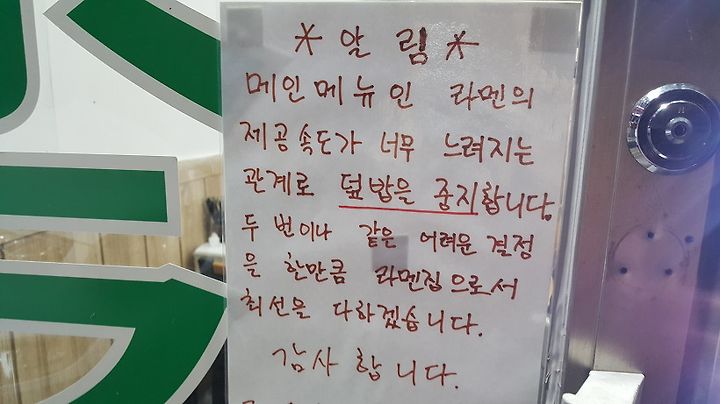 * 알 림 *
메인메뉴인 라멘의
제공속도가 너무 느려지는
관계로 덮밥을 중지합니다.
두 번이나 같은 어려운 결정
을 한만큼 라멘집으로서
최선을 다하겠습니다.
감사 합니다.